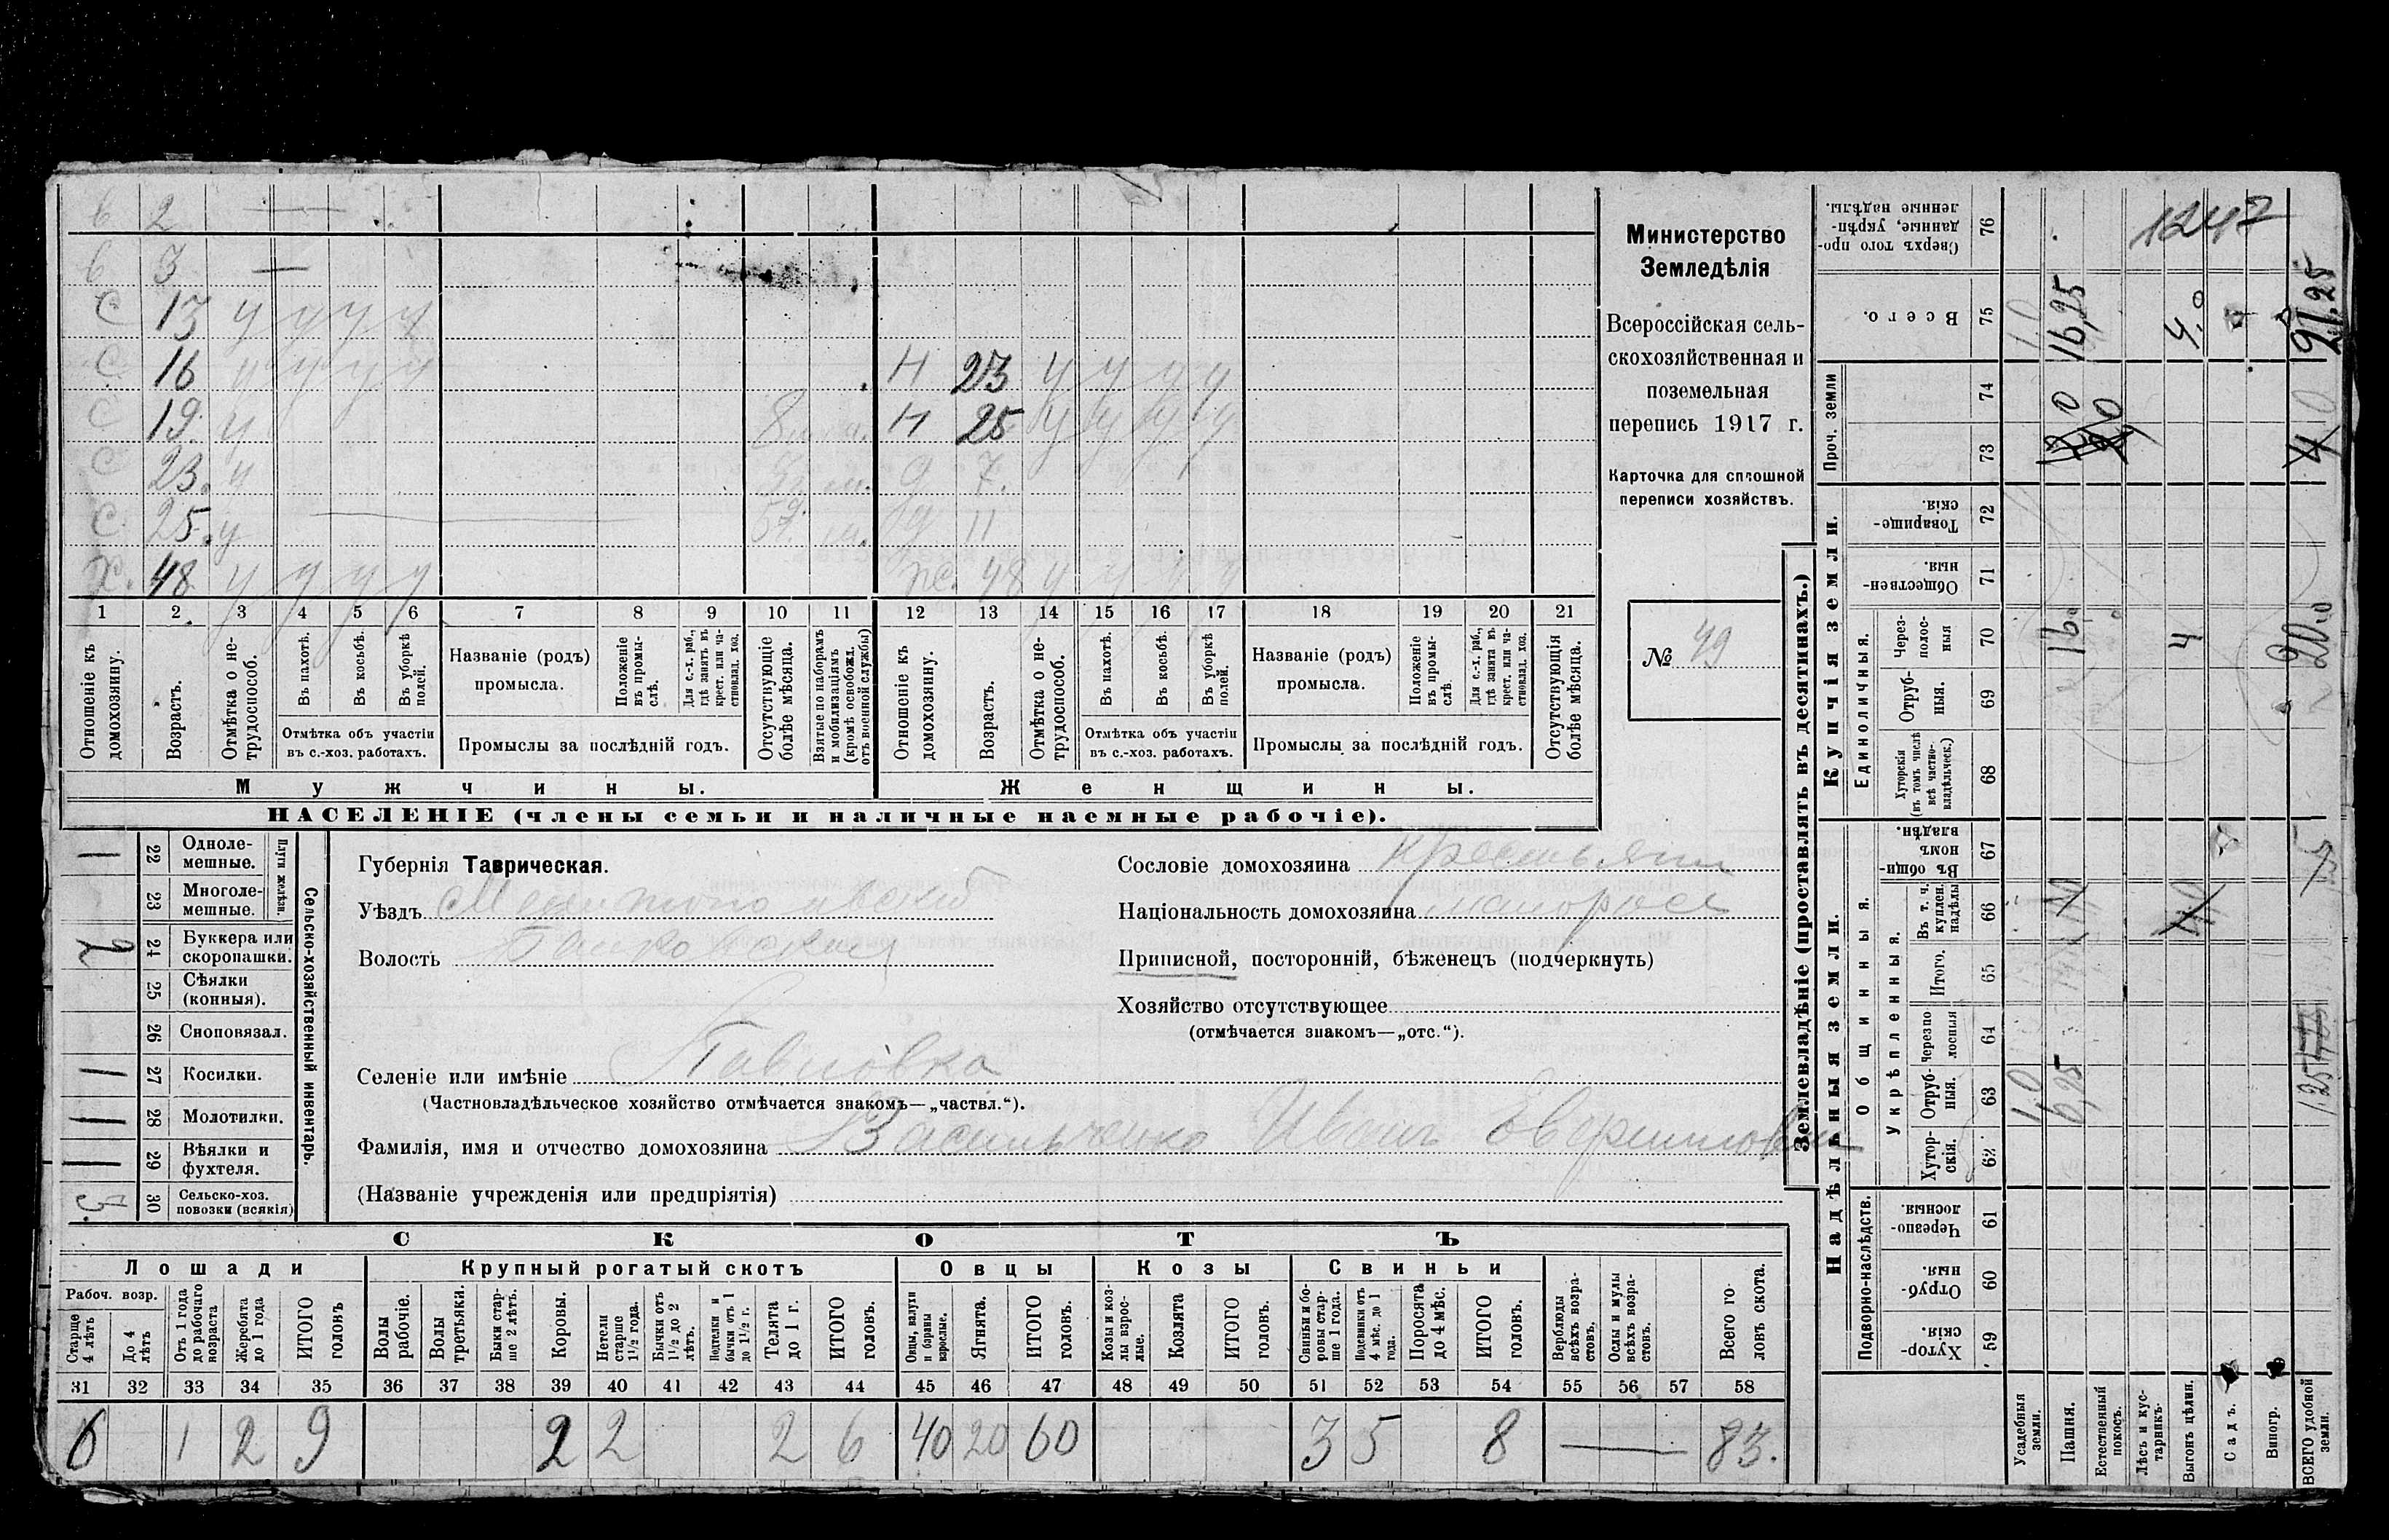 в 2 —
в 3 —
с 13 у у у у
с 16 у у у у Н 23 у у у у
с 19 у Н 25 у у у у
с 23 у 7
с 25 у 11
х. 48 у у у у ж. 48 у у у у
1 2 3 4 5 6 7 8 9 10 11 12 13 14 15 16 17 18 19 20 21
Отношеніе къ домохозяину.
Возрастъ.
Отмѣтка о не-трудоспособ.
Въ пахотѣ.
Въ косьбѣ.
Въ уборкѣ полей.
Отмѣтка объ участіи въ с.-хоз. работахъ.
Названіе (родъ) промысла.
Положеніе въ промы-слѣ.
Для с.-х. раб., гдѣ занятъ въ крест. или ча-стновлад. хоз.
Промыслы за послѣдній годъ.
Отсутствующіе болѣе мѣсяца.
Взятые по наборамъ и мобилизаціямъ (кромѣ освобожд. отъ военной службы)
Отношеніе къ домохозяину.
Возрастъ.
Отмѣтка о не-трудоспособ.
Въ пахотѣ.
Въ косьбѣ.
Въ уборкѣ полей.
Отмѣтка объ участіи въ с.-хоз. работахъ.
Названіе (родъ) промысла.
Положеніе въ промы-слѣ.
Для с.-х. раб., гдѣ занята въ крест. или ча-стновлад. хоз.
Промыслы за послѣдній годъ.
Отсутствующія болѣе мѣсяца.
Мужчины. Женщины.
НАСЕЛЕНІЕ (члены семьи и наличные наемные рабочіе).
Министерство
Земледѣлія
Всероссійская сель-
скохозяйственная и
поземельная
перепись 1917 г.
Карточка для сплошной
переписи хозяйствъ.
№ 49
22 Одноле-мешные. 1
23 Многоле-мешные.
Плуги желѣзн.
24 Буккера или скоропашки.
25 Сѣялки (конныя).
26 Сноповязал.
27 Косилки. 1
28 Молотилки. 1
29 Вѣялки и фухтеля. 1
30 Сельско-хоз. повозки (всякія) 3.
Сельско-хозяйственный инвентарь.
Губернія Таврическая.
Уѣздъ Мелитопольскій
Волость
Селеніе или имѣніе Павловка
(Частновладѣльческое хозяйство отмѣчается знакомъ—„частвл.“).
Фамилія, имя и отчество домохозяина Васильченко Иванъ
(Названіе учрежденія или предпріятія)
Сословіе домохозяина крестьянин
Національность домохозяина малоросс
Приписной, посторонній, бѣженецъ (подчеркнуть)
Хозяйство отсутствующее
(отмѣчается знакомъ—„отс.“).
СКОТЪ
Лошади Крупный рогатый скотъ Овцы Козы Свиньи
Рабоч. возр.
Старше 4 лѣтъ
До 4 лѣтъ
Отъ 1 года до рабочаго возраста
Жеребята до 1 года
ИТОГО головъ
Волы рабочіе.
Волы третьяки.
Быки стар-ше 2 лѣтъ.
Коровы.
Нетели старше 1½ года.
Бычки отъ 1½ до 2 лѣтъ.
Подтелки и бычки отъ 1 до 1½ г.
Телята до 1 г.
ИТОГО головъ.
Овцы, валухи и бараны взрослые.
Ягнята.
ИТОГО головъ.
Козы и коз-лы взрос-лые.
Козлята
ИТОГО головъ.
Свиньи и бо-ровы стар-ше 1 года.
Подсвинки отъ 4 мѣс. до 1 года.
Поросята до 4 мѣс.
ИТОГО головъ.
Верблюды всѣхъ возра-стовъ.
Ослы и мулы всѣхъ возра-стовъ.
Всего го-ловъ скота.
31 32 33 34 35 36 37 38 39 40 41 42 43 44 45 46 47 48 49 50 51 52 53 54 55 56 57 58
6 1 2 9 2 2 2 6 40 20 60 3 5 8 — 83.
Землевладѣніе (проставлять въ десятинахъ.)
Купчія земли.
Надѣльныя земли.
Сверхъ того про-данные, укрѣп-ленные надѣлы. 76
Всего. 75
Проч. земли 74 73
Товарище-скія. 72
Обществен-ныя. 71
Единоличныя.
Через-полос-ныя 70
Отруб-ныя. 69
Хуторскія (въ томъ числѣ всѣ частно-владѣльческ.) 68
Общинныя.
Въ общин-номъ владѣн. 67
Укрѣпленныя.
Въ т. ч. куплен. надѣлы 66
Итого. 65
Черезпо-лосныя 64
Отруб-ныя. 63
Хутор-скія. 62
Подворно-наслѣдств.
Черезпо-лосныя. 61
Отруб-ныя. 60
Хутор-скія. 59
Усадебныя земли. 1,0 1,0
Пашня. 6,25 16,0 16,25
Естественный покосъ.
Лѣсъ и ку-старникъ.
Выгонъ цѣлин. 4 4,0
Садъ.
Виногр.
ВСЕГО удобной земли. 20,0 21.25
1247